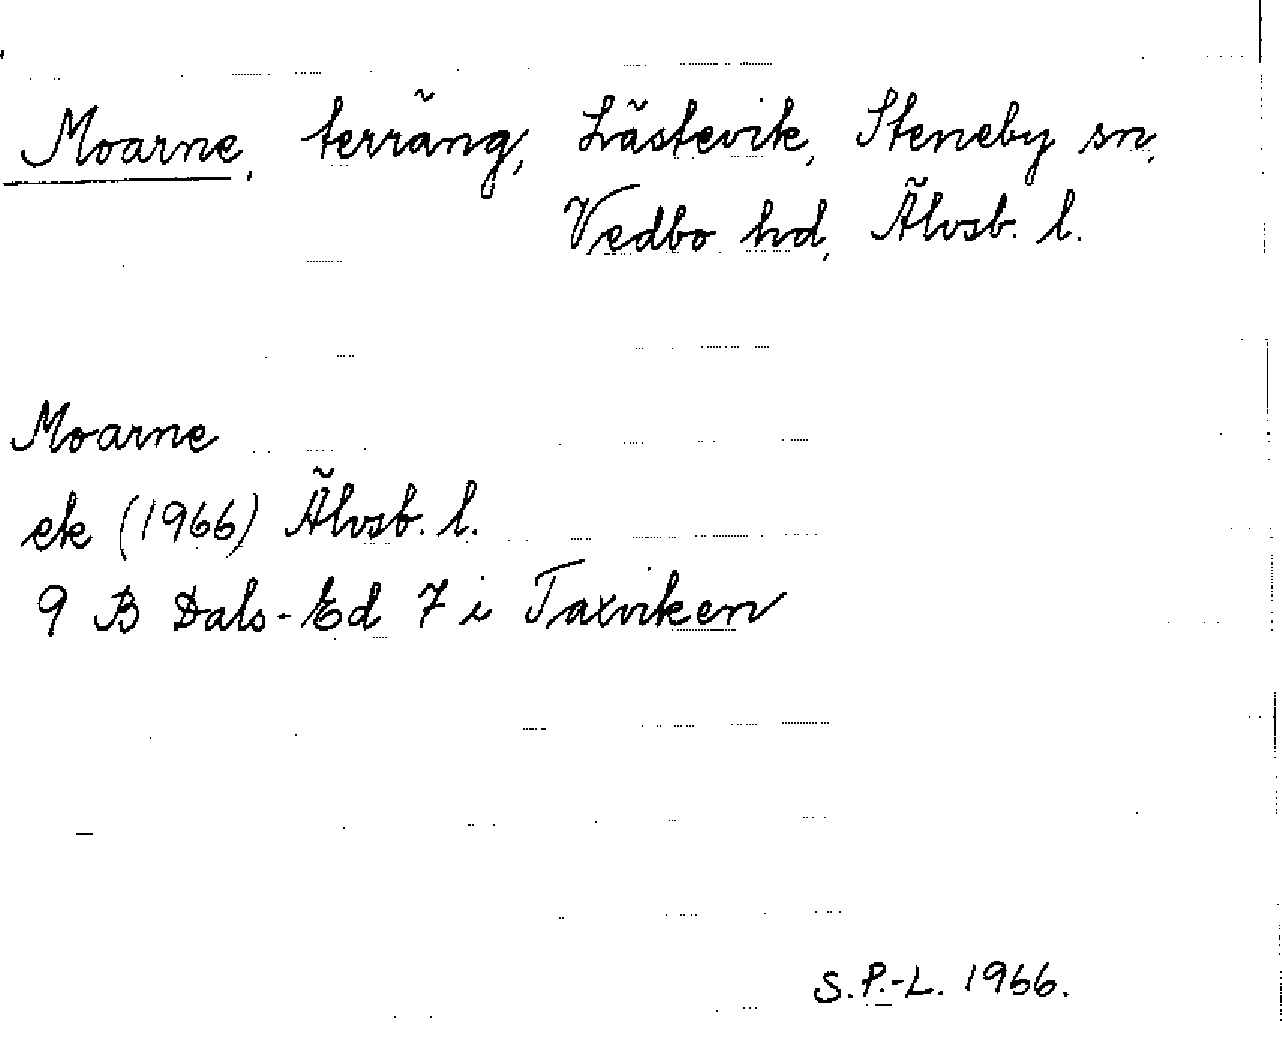 Moarne, terräng, Lästevik, Steneby sn,
Vedbo hd, Älvsb. l.
Moarne
ek (1966) Älvsb. l.
9 B Dals-Ed 7 i Taxviken
S.P.-L. 1966.